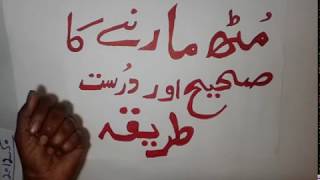 مُٹھ مارنے کا
صحیح اور دُرست
طریقہ